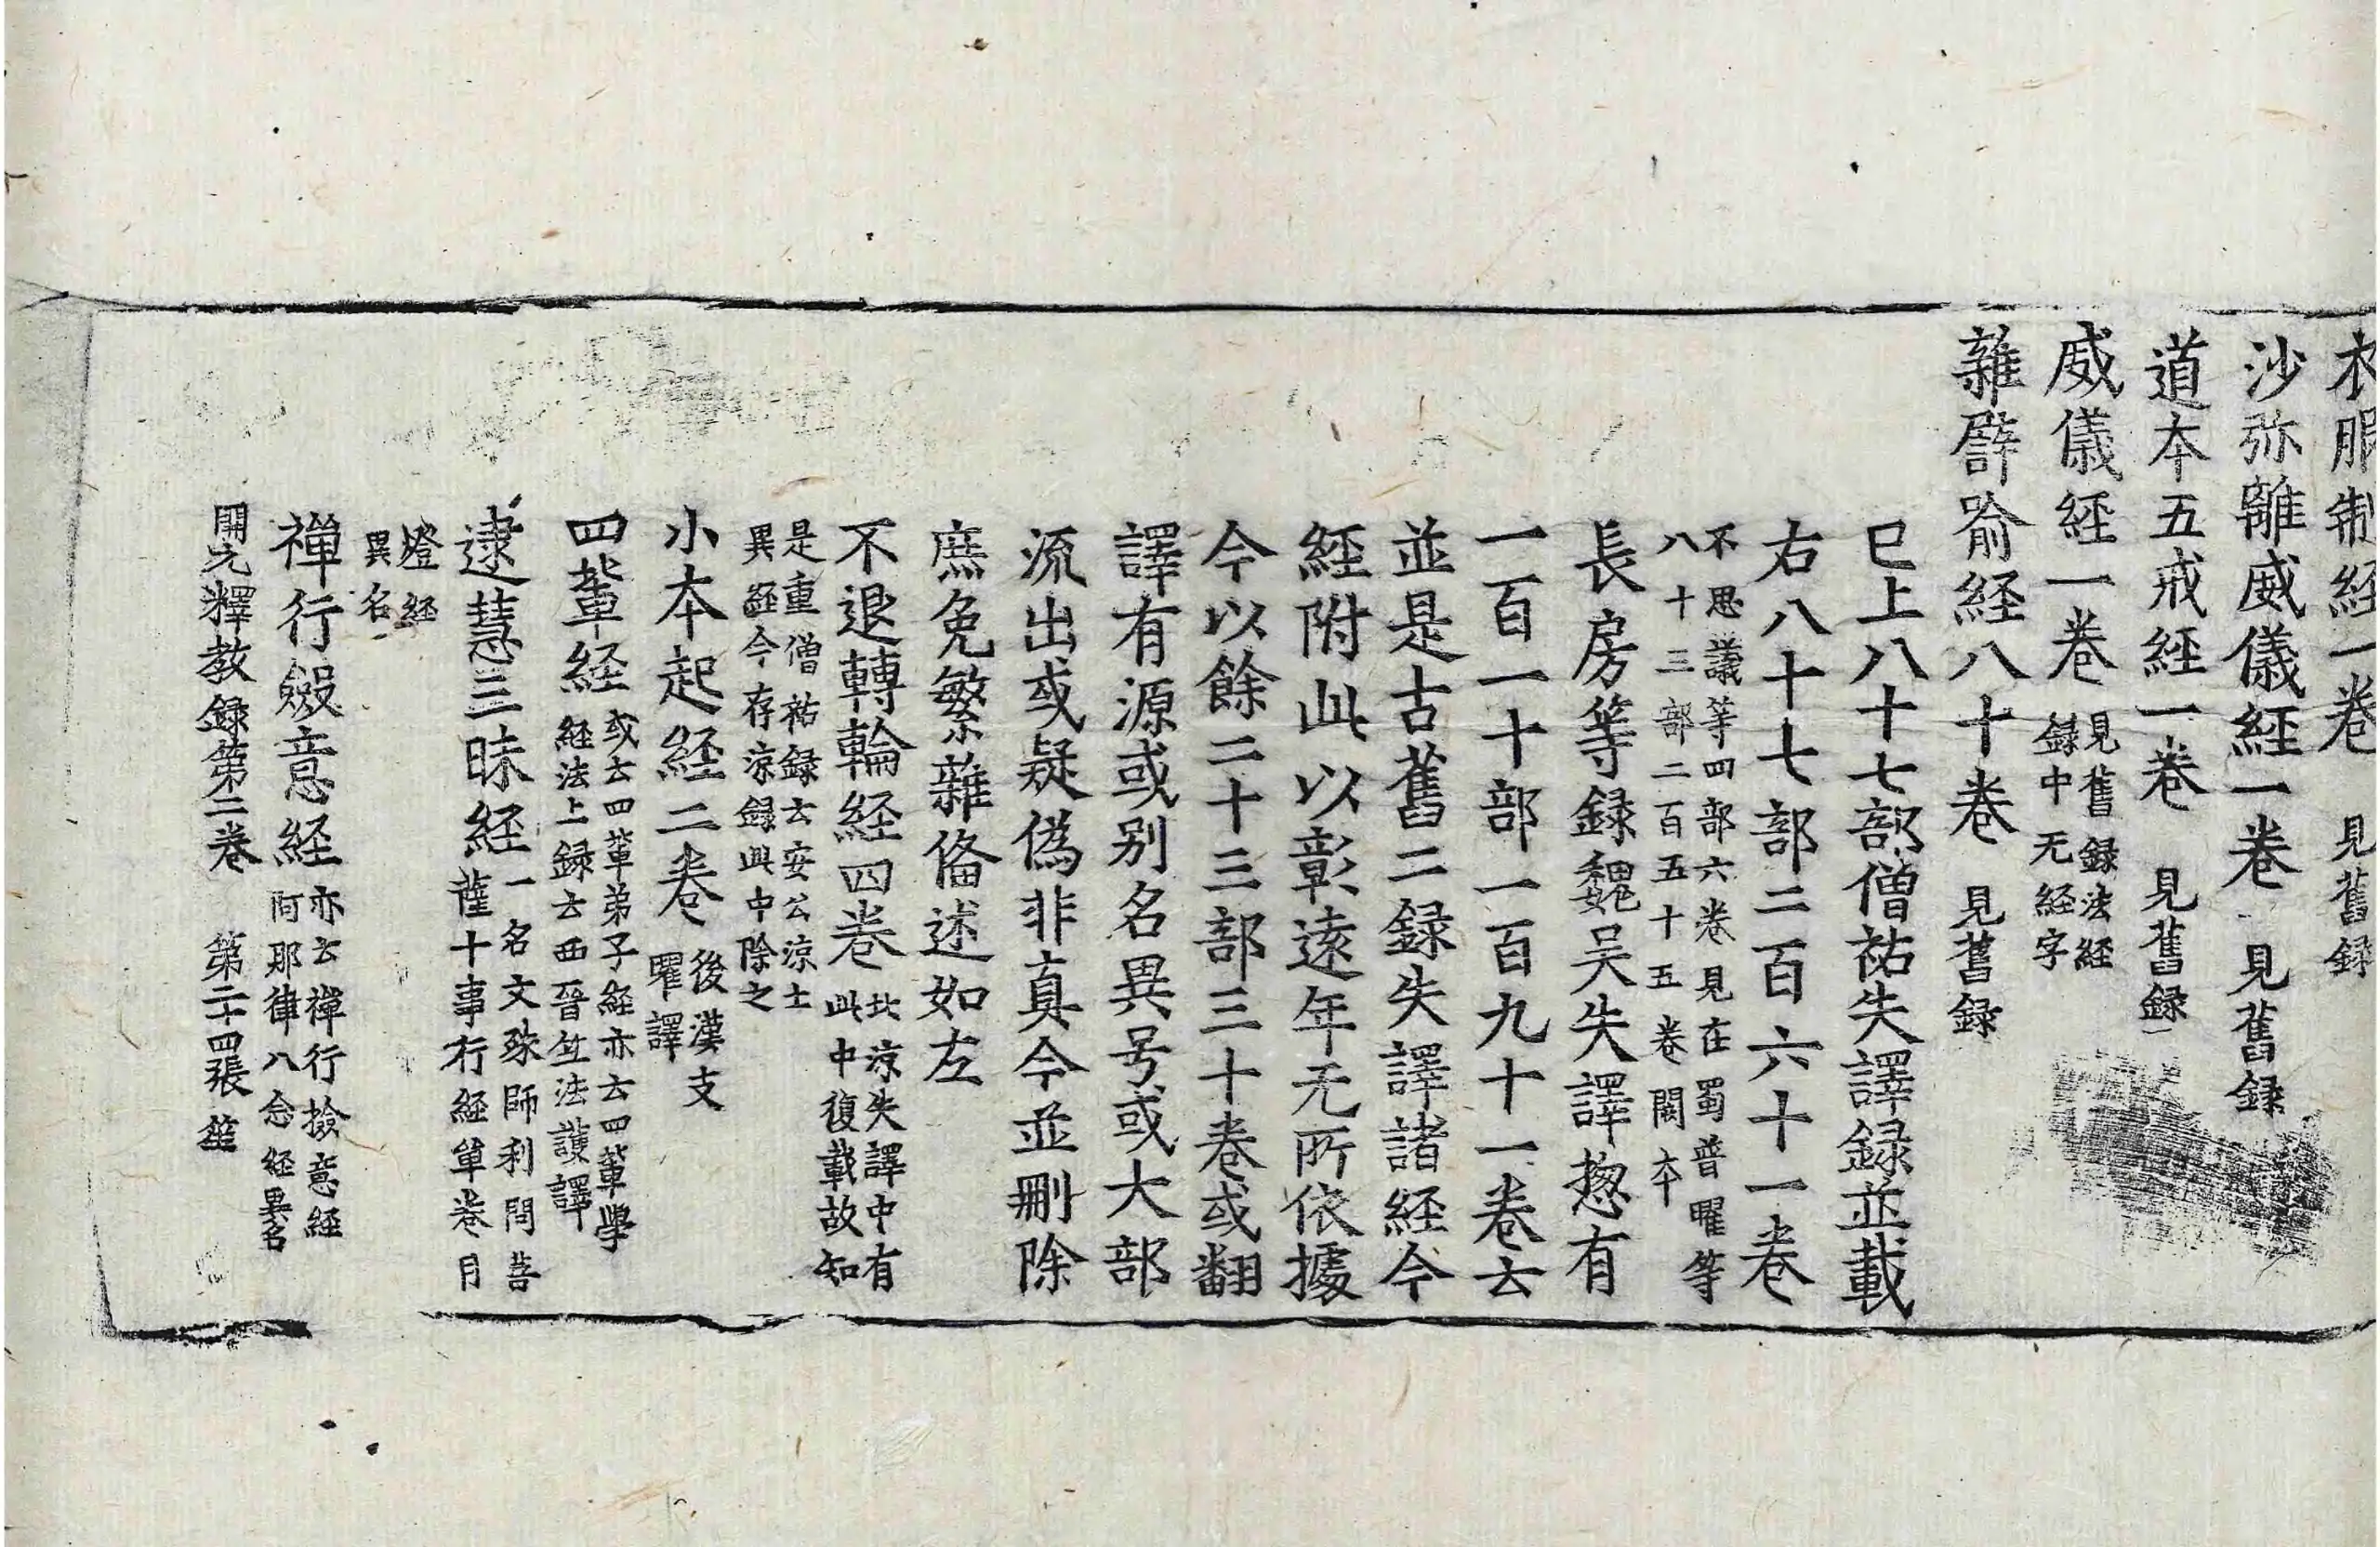 衣服制経一卷　見舊録
沙弥離威儀経一卷　見舊録
道本五戒経一卷　見舊録
威儀経一卷　見舊録法経録中无経字
雜譬喻経八十卷　見舊録
巳上八十七部僧祐失譯録並載
右八十七部二百六十一卷
不思議等四部六卷見在蜀普曜等
八十三部二百五十五卷闕本
長房等録魏吴失譯惣有
一百一十部一百九十一卷去
並是古舊二録失譯諸経今
経附此以彰遠年无所依據
今以餘二十三部三十卷或翻
譯有源或别名異号或大部
流出或疑偽非真今並刪除
庶免繁雜俻述如左
不退轉輪経四卷　北涼失譯中有此中復載故知
是重僧祐録云安公涼土
異経今存涼録此中除之
小本起経二卷　後漢支曜譯
四輩経　或云四輩弟子経亦云四輩學経法上録云西晉竺法護譯
逮慧三昧経　一名文殊師利問菩薩十事行経單卷月
燈経
異名
禪行斂意経　亦云禪行撿意経阿那律八念経異名
開元釋教録第二卷　第二十四張　笙